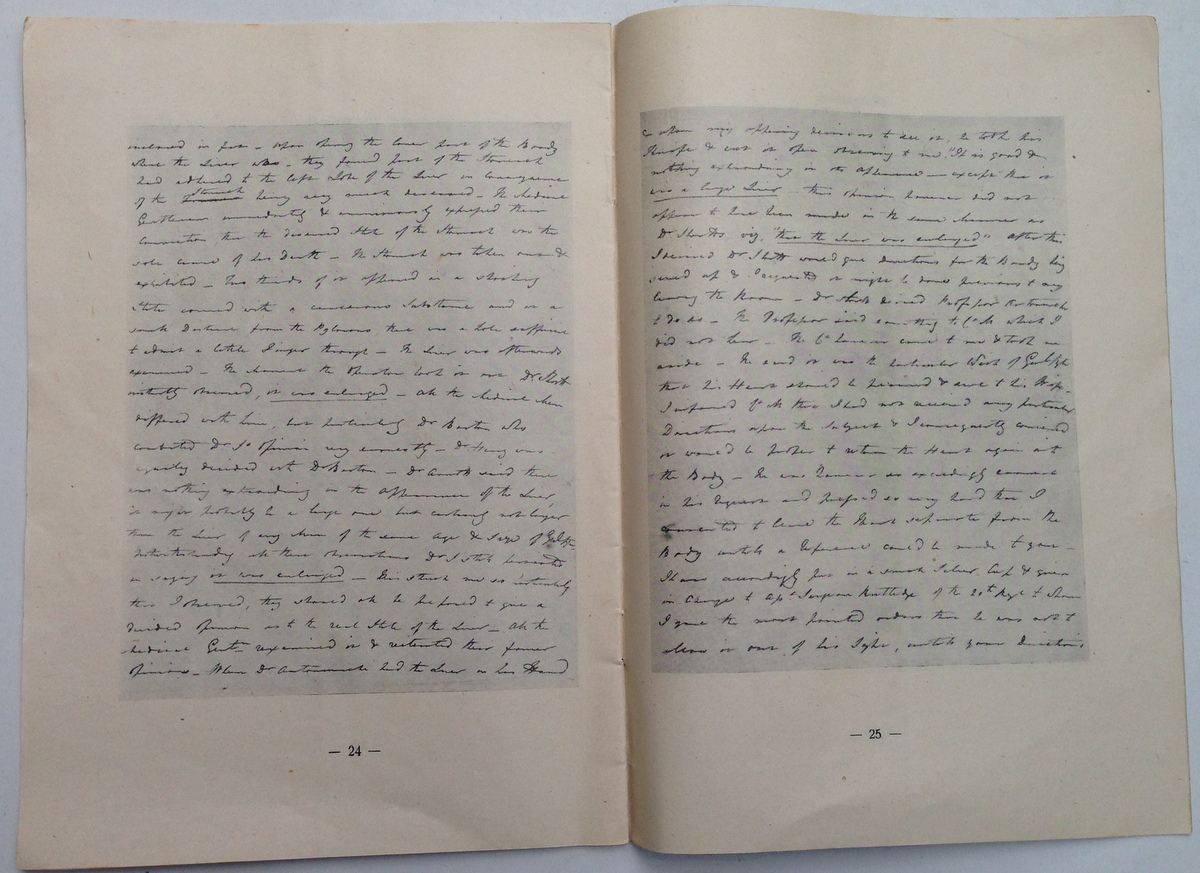 enclosed in fat — Upon opening the lower part of the Body
where the Liver was — they found part of the Stomach
had adhered to the left Side of the Liver in consequence
of the Stomach being very much diseased — The Medical
Gentlemen immediately & unanimously expressed their
Conviction, that the diseased State of the Stomach was the
sole cause of his Death — The Stomach was taken out &
exhibited — Two thirds of it appeared in a shocking
State covered with a cancerous Substance and at a
small Distance from the Pylorus there was a hole sufficient
to admit a little Finger through — The Liver was afterwards
examined — The moment the Operator took it out Dr Short
instantly observed, it was enlarged — All the Medical Men
differed with him, but particularly Dr Burton who
combated Dr S's opinion very earnestly — Dr Henry was
equally decided with Dr Burton — Dr Arnott said there
was nothing extraordinary in the appearance of the Liver,
it might probably be a large one but certainly not larger
than the Liver of any Man of the same age &
notwithstanding all these observations Dr Short persisted
in saying it was enlarged — This struck me so intently
that I observed, they should all be prepared to give a
decided Opinion as to the real State of the Liver — All the
Medical Gentn reexamined it & reiterated their former
Opinions — When Dr Antommarchi had the Liver in his Hand
& upon my appearing desirous to see it, he took his
Knife & cut it open observing to me, "It is good &
nothing extraordinary in its appearance — except that it
was a large Liver — this opinion however did not
appear to have been made in the same manner as
Dr Short's viz. "that the Liver was enlarged" After this
I desired Dr Short would give directions for the Body being
sewed up & I requested it might be done previous to any
leaving the Room — Dr Short desired Professor
to do so — The Professor said something to Ct M. which I
did not hear — The Ct however came to me & took me
aside — He said it was the particular Wish of
that his Heart should be preserved & sent to his Wife —
I informed Ct M that I had not received any particular
Directions upon the Subject & I consequently conceived
it would be proper to return the Heart again into
the Body — He was however so exceedingly earnest
in his request and pressed so very hard that I
consented to leave the Heart separate from the
Body until a Reference could be made to you —
It was accordingly put in a small Silver Cup & given
in Charge to Asst Surgeon Rutledge of the 20th Regt to whom
I gave the most pointed orders that he was not to
allow it out of his Sight, until your Directions
— 24 —
— 25 —